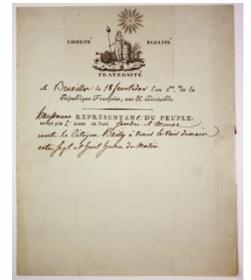 LIBERTÉ EGALITÉ
FRATERNITÉ
à Bruxelles le 18 fructidor l'an 2me de la
République Française, une & indivisible.
REPRÉSENTANT DU PEUPLE,
L'Armée du Nord, Sambre et Meuse
invite le Citoyen Bailly à venir le voir demain
entre sept et huit heures du matin